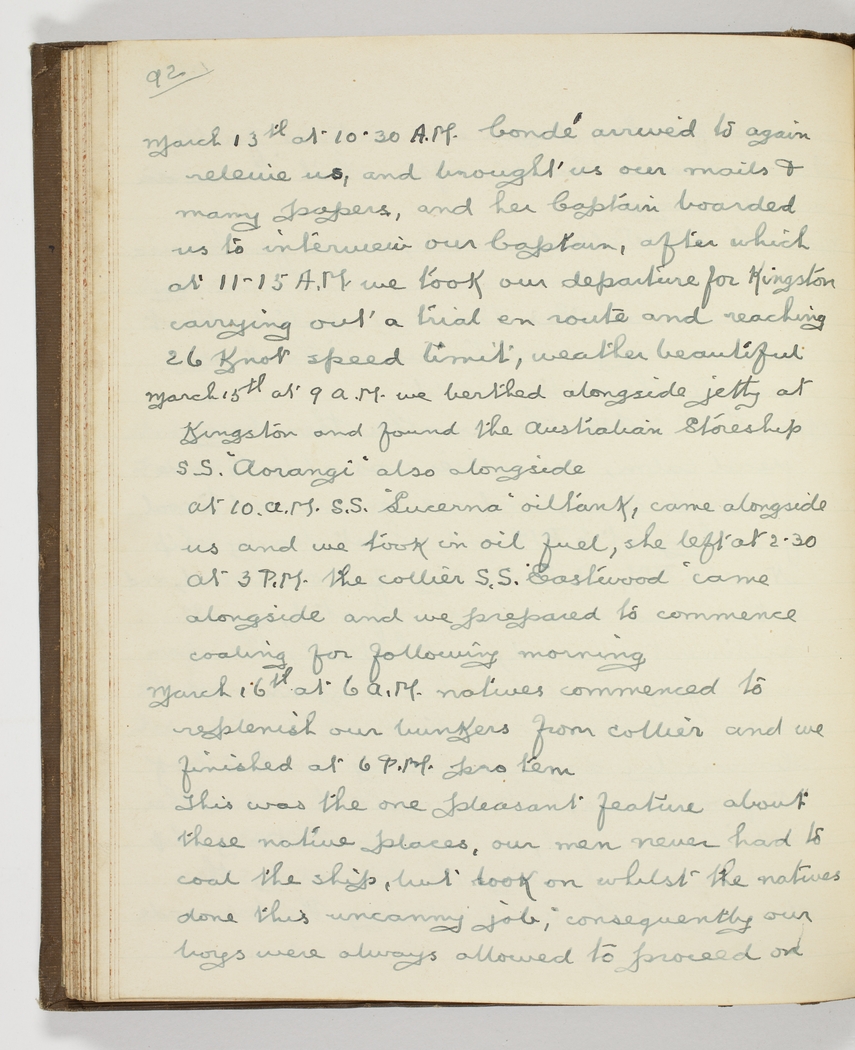 92
March 13th at 10·30 A.M. Condé arrived to again
releive us, and brought us our mails &
many papers, and her Captain boarded
us to interview our Captain, after which
at 11-15 A.M. we took our departure for Kingston
carrying out a trial en route and reaching
26 Knot speed limit, weather beautiful
March 15th at 9 a.M. we berthed alongside jetty at
Kingston and found the Australian Storeship
S.S. "Aorangi" also alongside
at 10.a.M. S.S. "Lucerna" oiltank, came alongside
us and we took in oil fuel, she left at 2·30
at 3 P.M. the collier S.S. "Eastwood" came
alongside and we prepared to commence
coaling for following morning
March 16th at 6 a.M. natives commenced to
replenish our bunkers from collier and we
finished at 6 P.M. pro tem
This was the one pleasant feature about
these native places, our men never had to
coal the ship, but look on whilst the natives
done this uncanny job, consequently our
boys were always allowed to proceed on